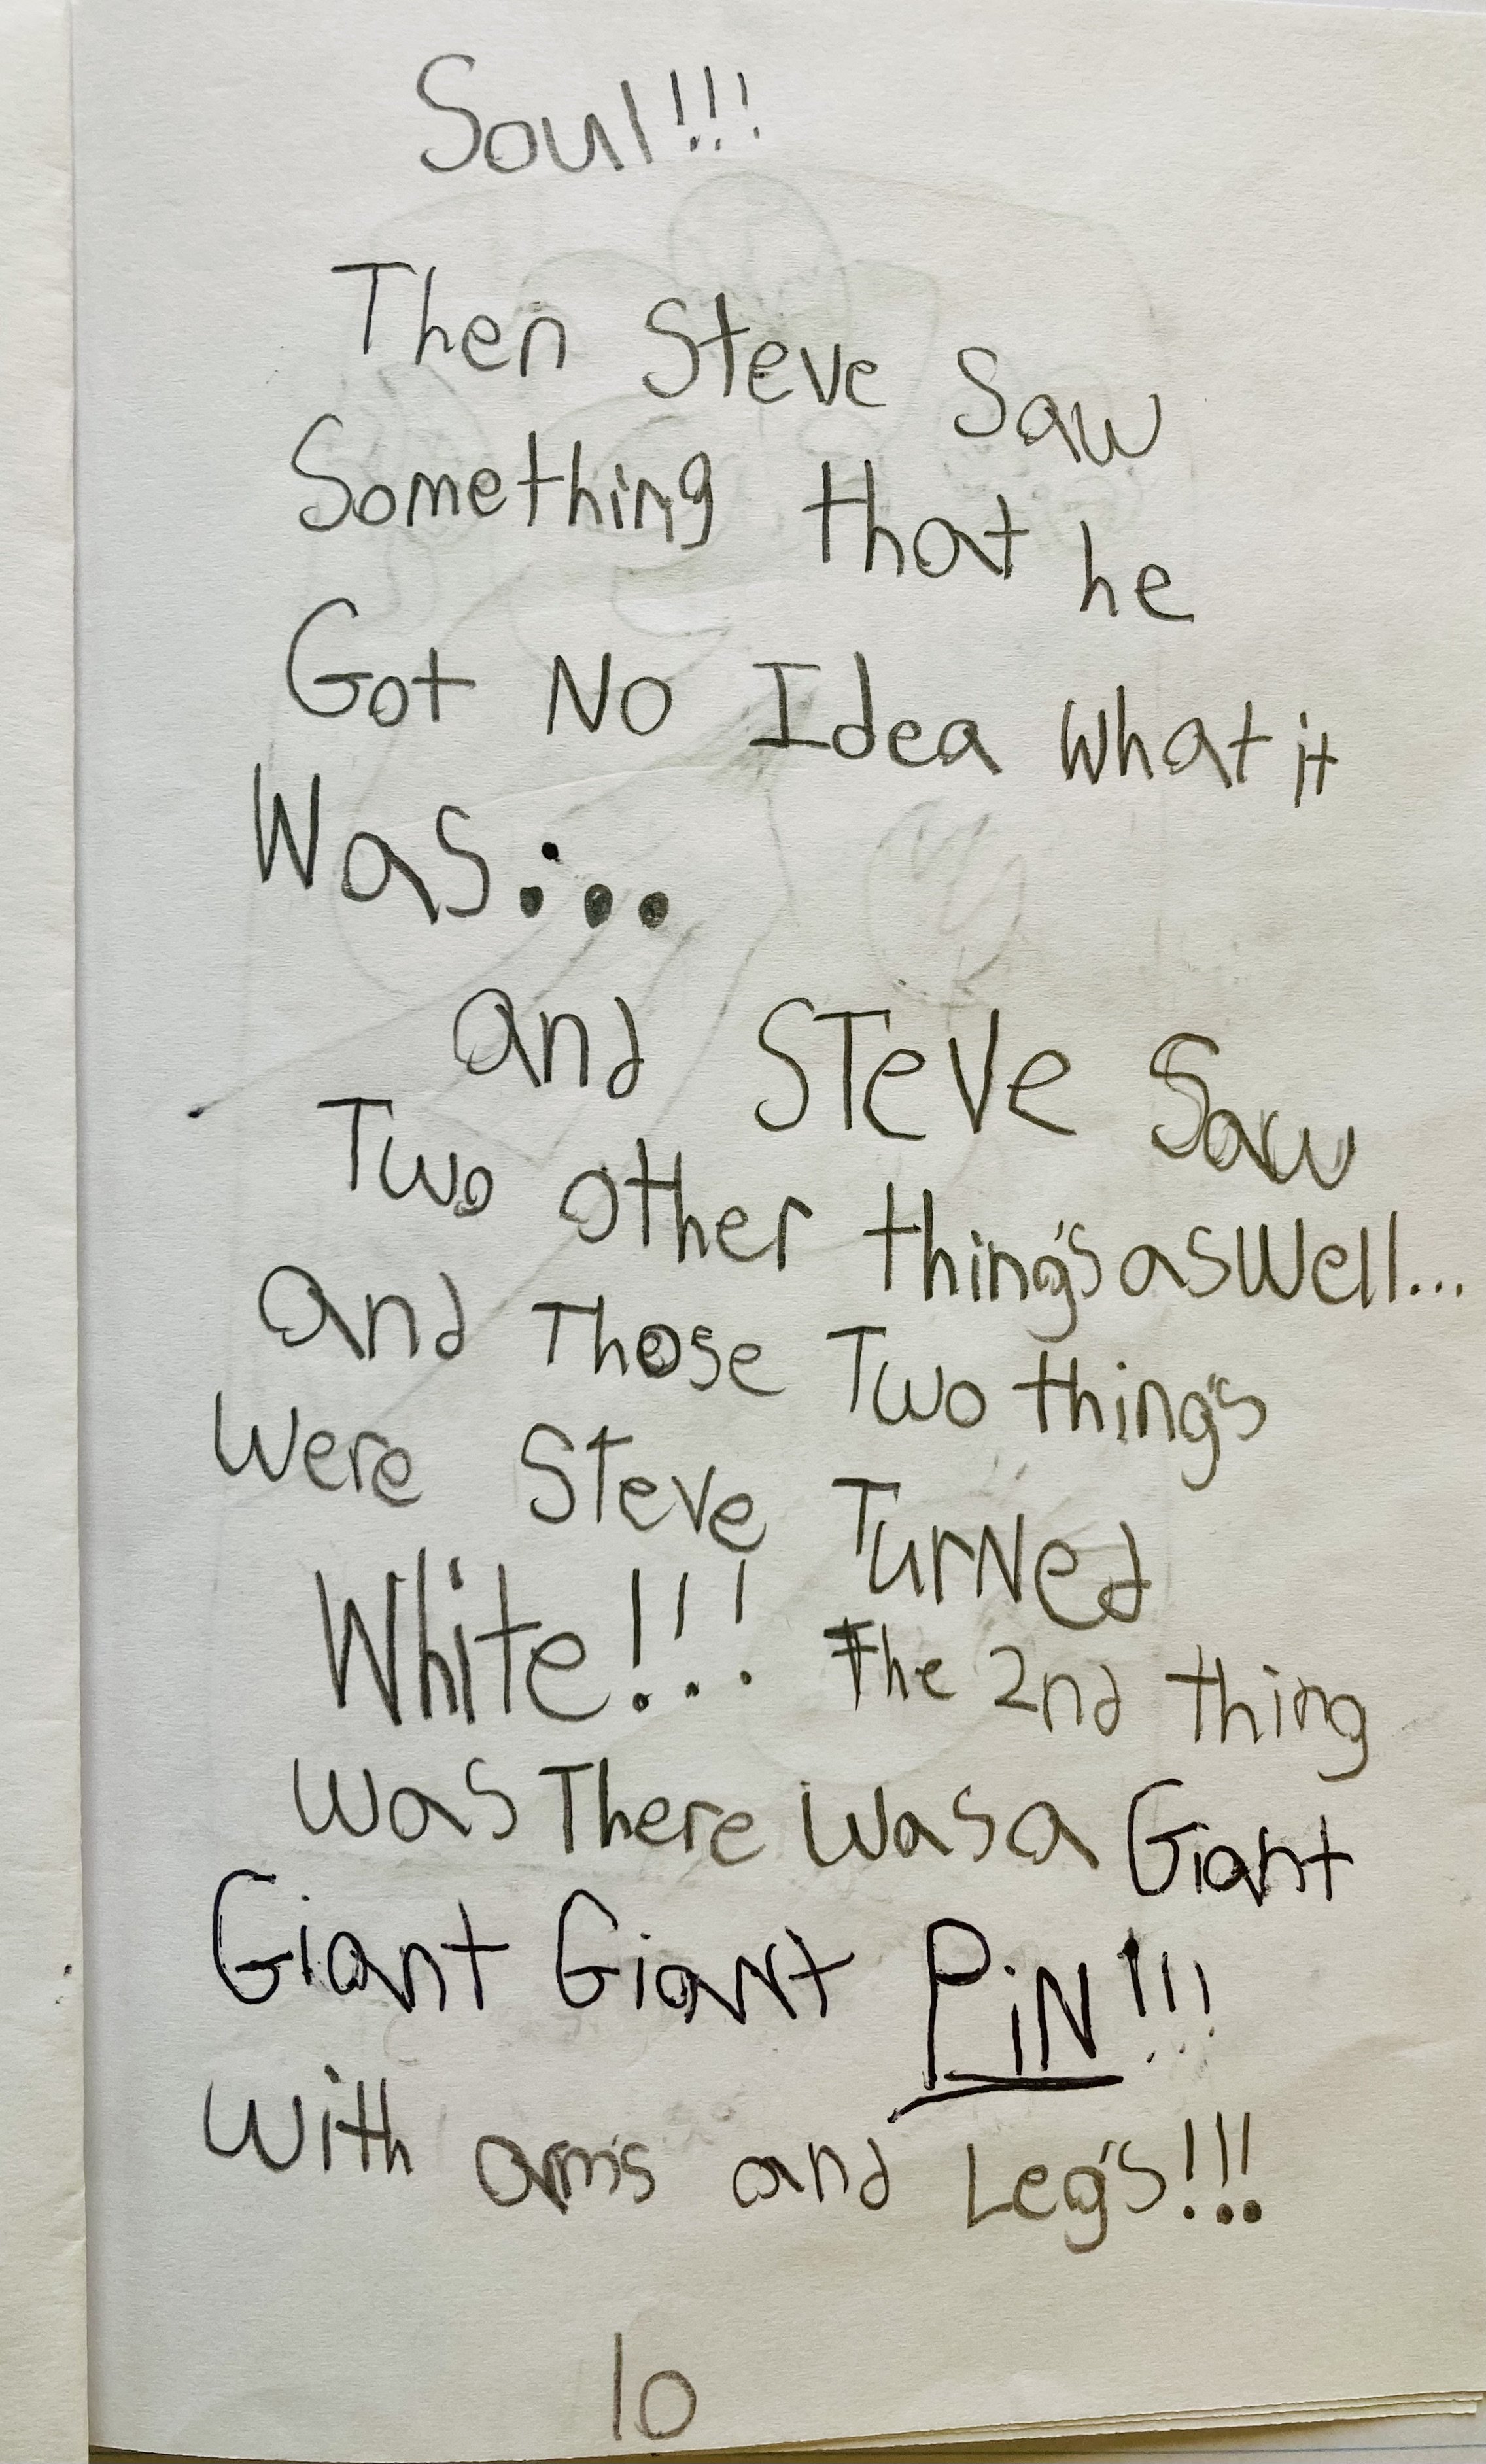 Soul!!!
Then Steve Saw
Something that he
Got No Idea What it
Was:..
and STeVe Saw
Two other thing's as Well...
and Those Two thing's
Were SteVe TurNed
White!!! The 2nd thing
was There Was a Giant
Giant Giant PiN!!!
With arm's and Leg's!!!
10